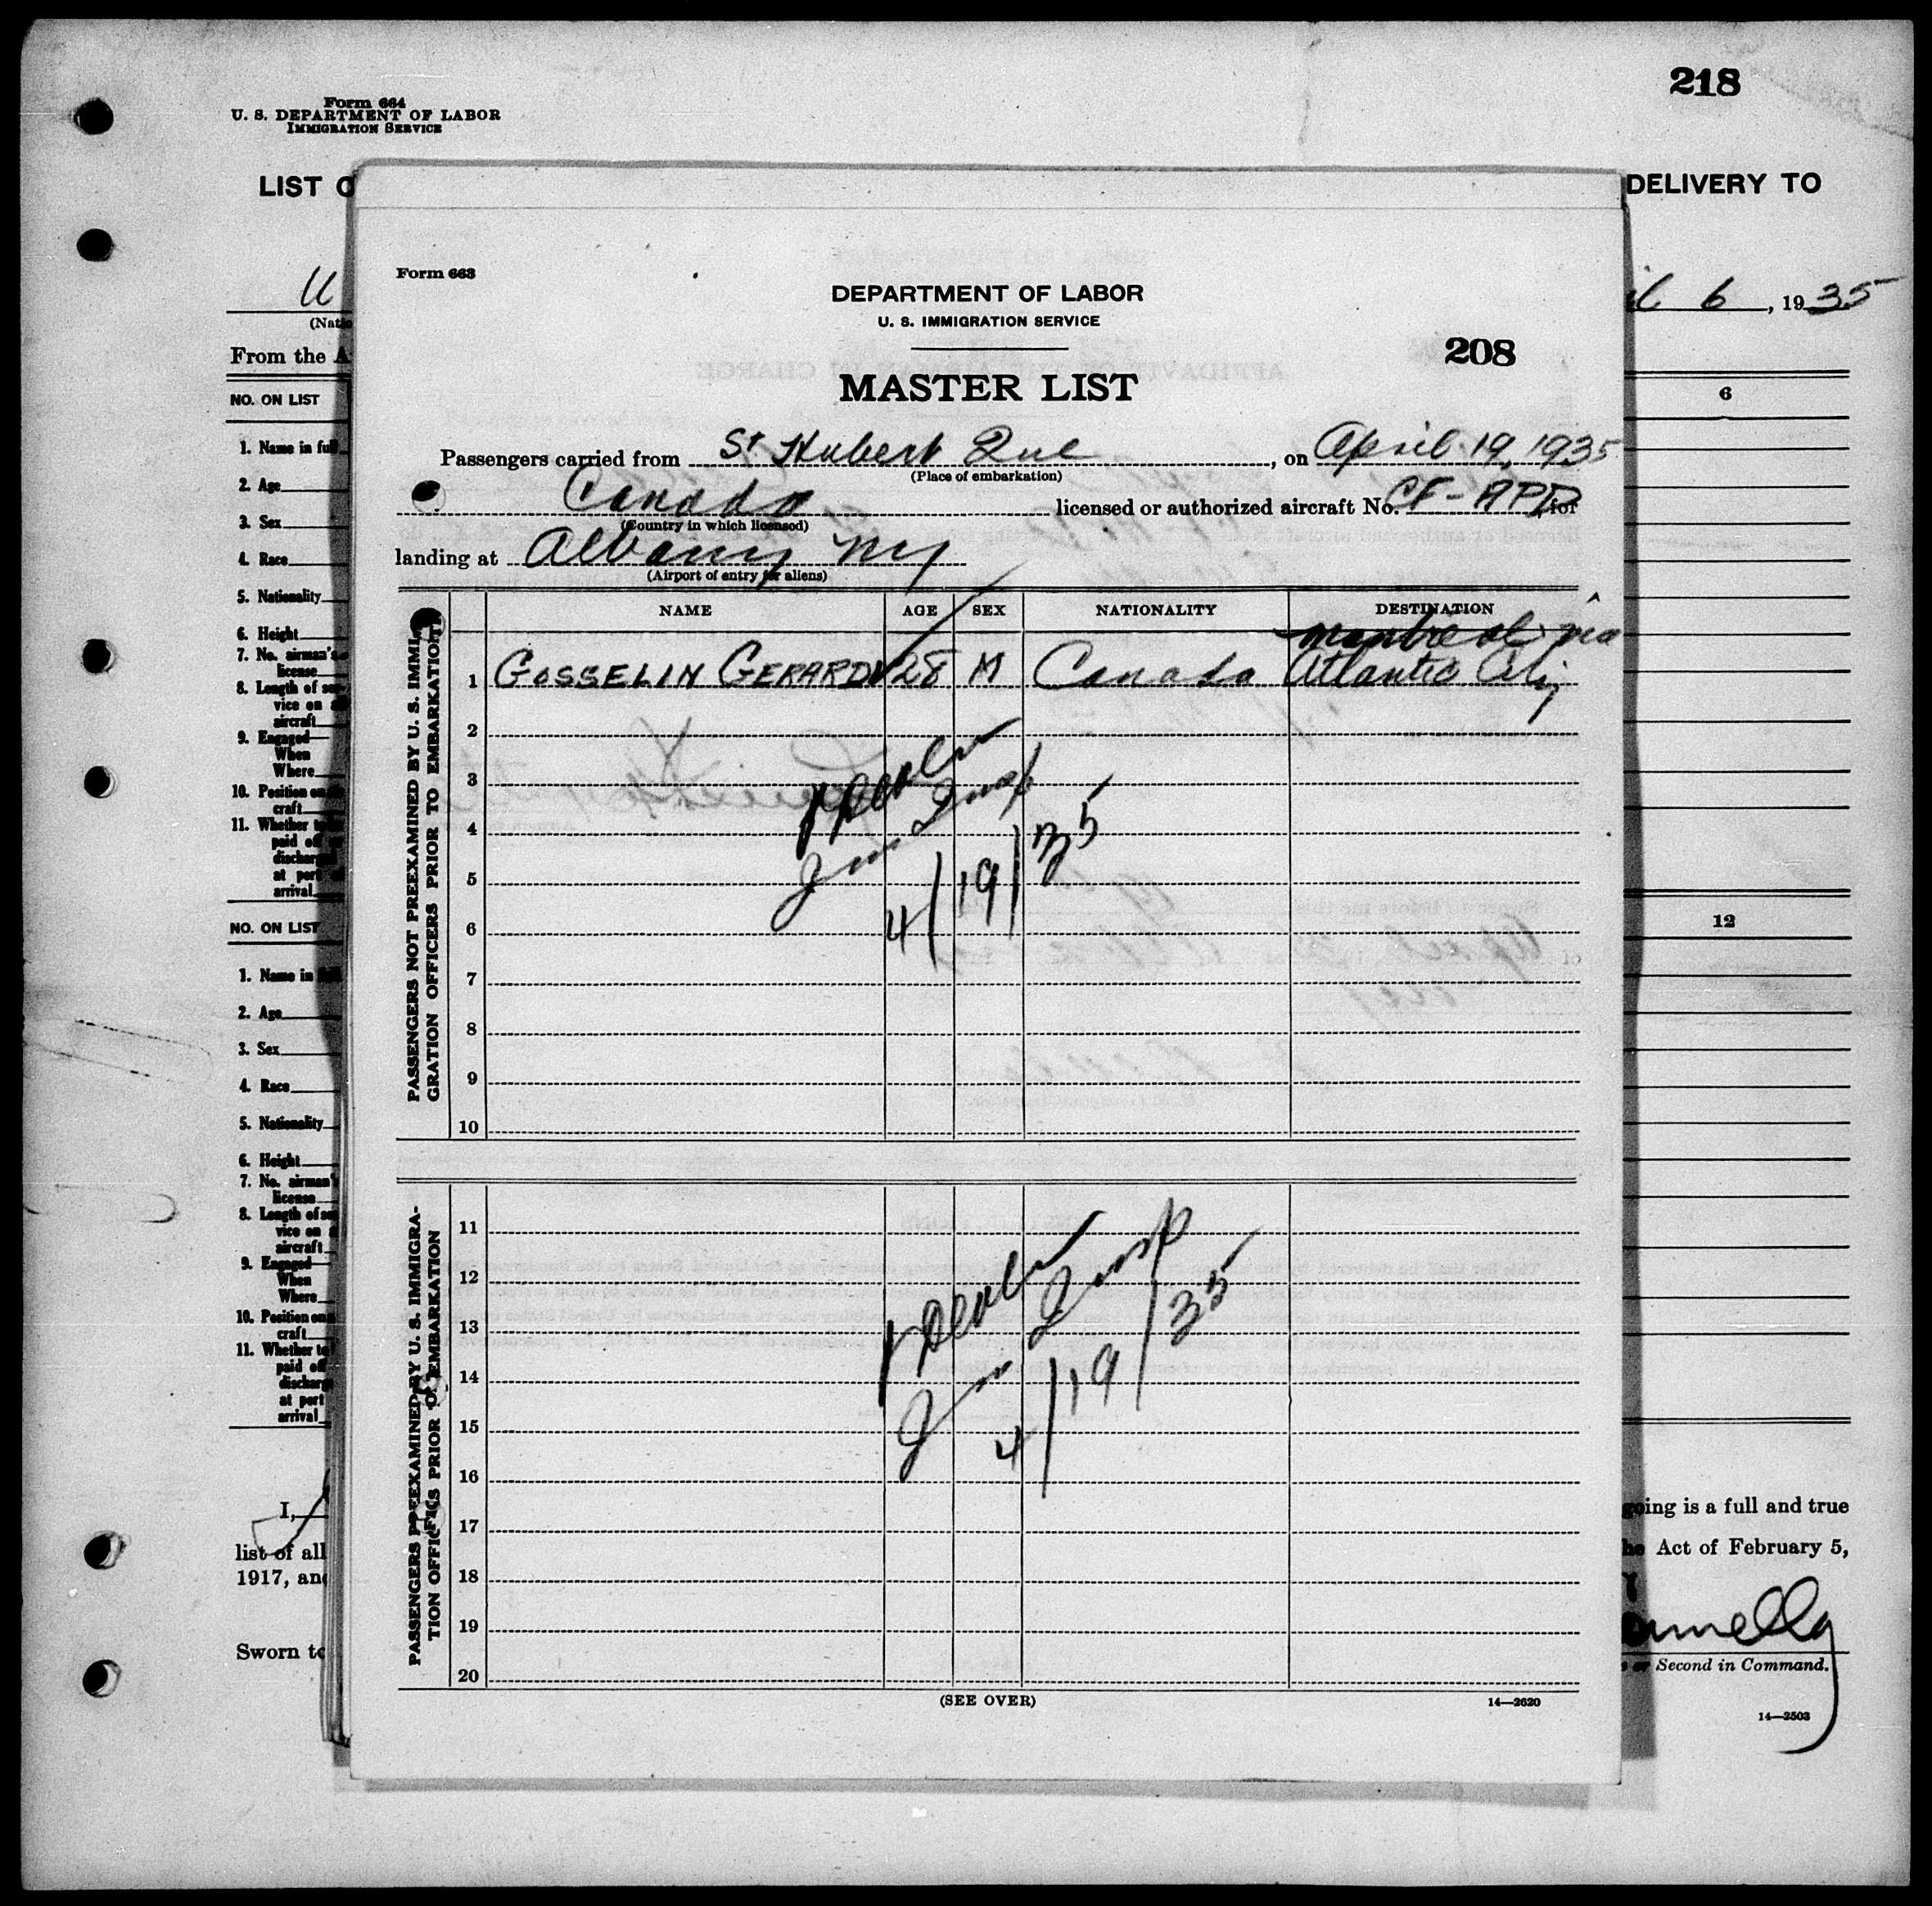 218
Form 664
U. S. DEPARTMENT OF LABOR
IMMIGRATION SERVICE
LIST O
DELIVERY TO
U
(Natio
il 6, 1935
From the A
NO. ON LIST
6
1. Name in full
2. Age
3. Sex
4. Race
5. Nationality
6. Height
7. No. airman's
license
8. Length of ser-
vice on a
aircraft
9. Engaged
When
Where
10. Position on
craft
11. Whether to
paid off
discharg
at port
arrival
NO. ON LIST
12
1. Name in
2. Age
3. Sex
4. Race
5. Nationality
6. Height
7. No. airman's
license
8. Length of ser
vice on a
aircraft
9. Engaged
When
Where
10. Position on
craft
11. Whether to
paid off
discharg
at port
arrival
I,
going is a full and true
list of all
he Act of February 5,
1917, and
Sworn to
or Second in Command.
14—2503
Form 663
DEPARTMENT OF LABOR
U. S. IMMIGRATION SERVICE
208
MASTER LIST
Passengers carried from St Hubert Que, on April 19, 1935
(Place of embarkation)
Canada licensed or authorized aircraft No. CF-APD for
(Country in which licensed)
landing at Albany NY
(Airport of entry for aliens)
NAME AGE SEX NATIONALITY DESTINATION
Montreal via
1 GOSSELIN GERARD 28 M Canada Atlantic City
2
3
4
5
6
7
8
9
10
Imm Insp
4/19/35
PASSENGERS NOT PREEXAMINED BY U. S. IMMI-
GRATION OFFICERS PRIOR TO EMBARKATION
11
12
13
14
15
16
17
18
19
20
Imm Insp
4/19/35
PASSENGERS PREEXAMINED BY U. S. IMMIGRA-
TION OFFICERS PRIOR TO EMBARKATION
(SEE OVER)
14—2620